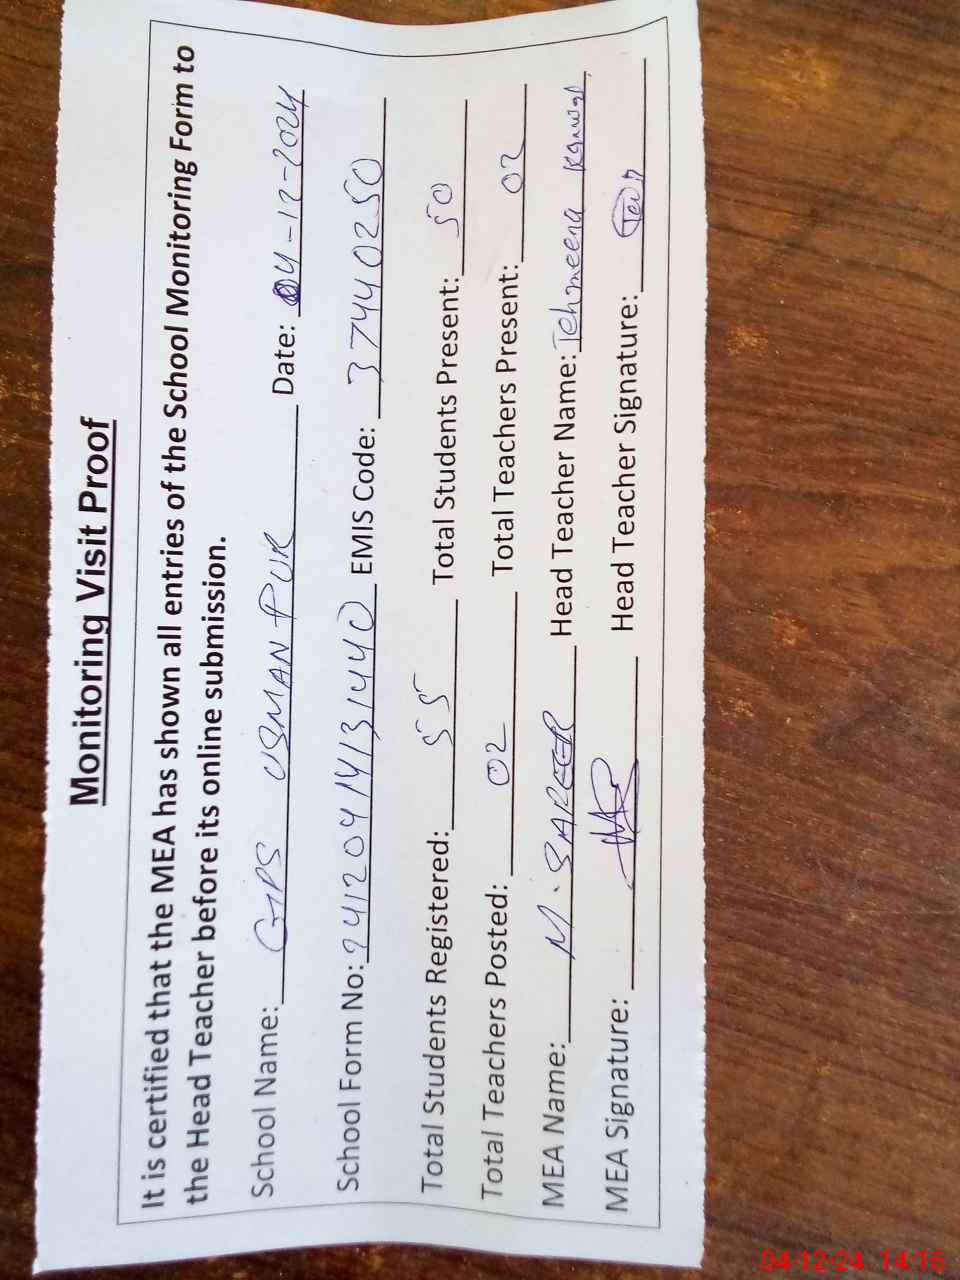 Monitoring Visit Proof
It is certified that the MEA has shown all entries of the School Monitoring Form to
the Head Teacher before its online submission.
School Name: GPS USMAN PUR Date: 04-12-2024
School Form No: 24120414131440 EMIS Code: 37440250
Total Students Registered: 55 Total Students Present: 50
Total Teachers Posted: 02 Total Teachers Present: 02
MEA Name: M. Head Teacher Name: Tehmeena Kanwal
MEA Signature: Head Teacher Signature:
04-12-24 14:15